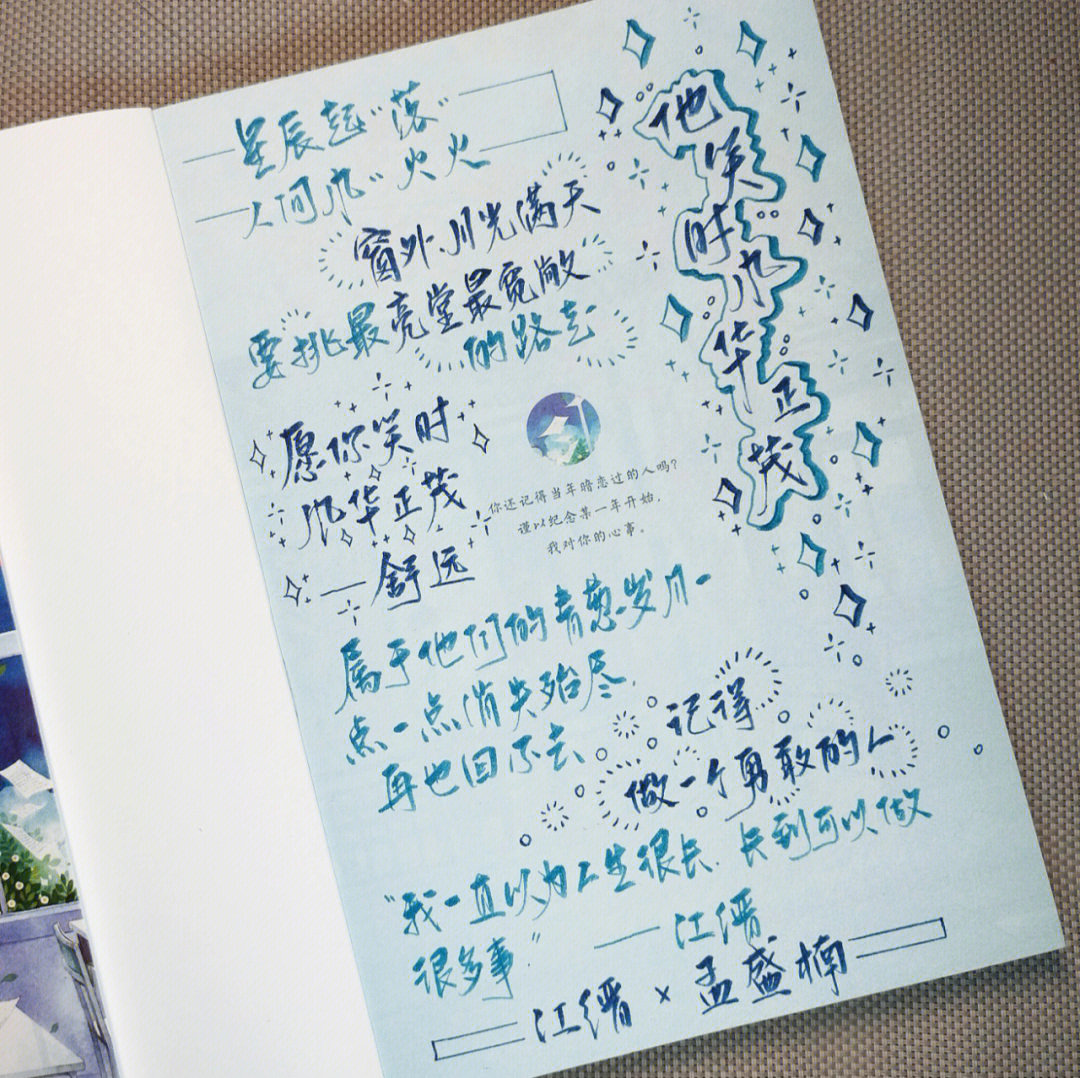 星辰起"落"
人间"风"火火
他笑时风华正茂
窗外月光满天
要挑最亮堂最宽敞
的路走
愿你笑时
风华正茂
——舒远
你还记得当年暗恋过的人吗?
谨以纪念某一年开始,
我对你的心事。
属于他们的青葱岁月一
点一点消失殆尽,
再也回不去
记得
做一个勇敢的人
"我一直以为人生很长,长到可以做
很多事"——江缙
江缙×孟盛楠